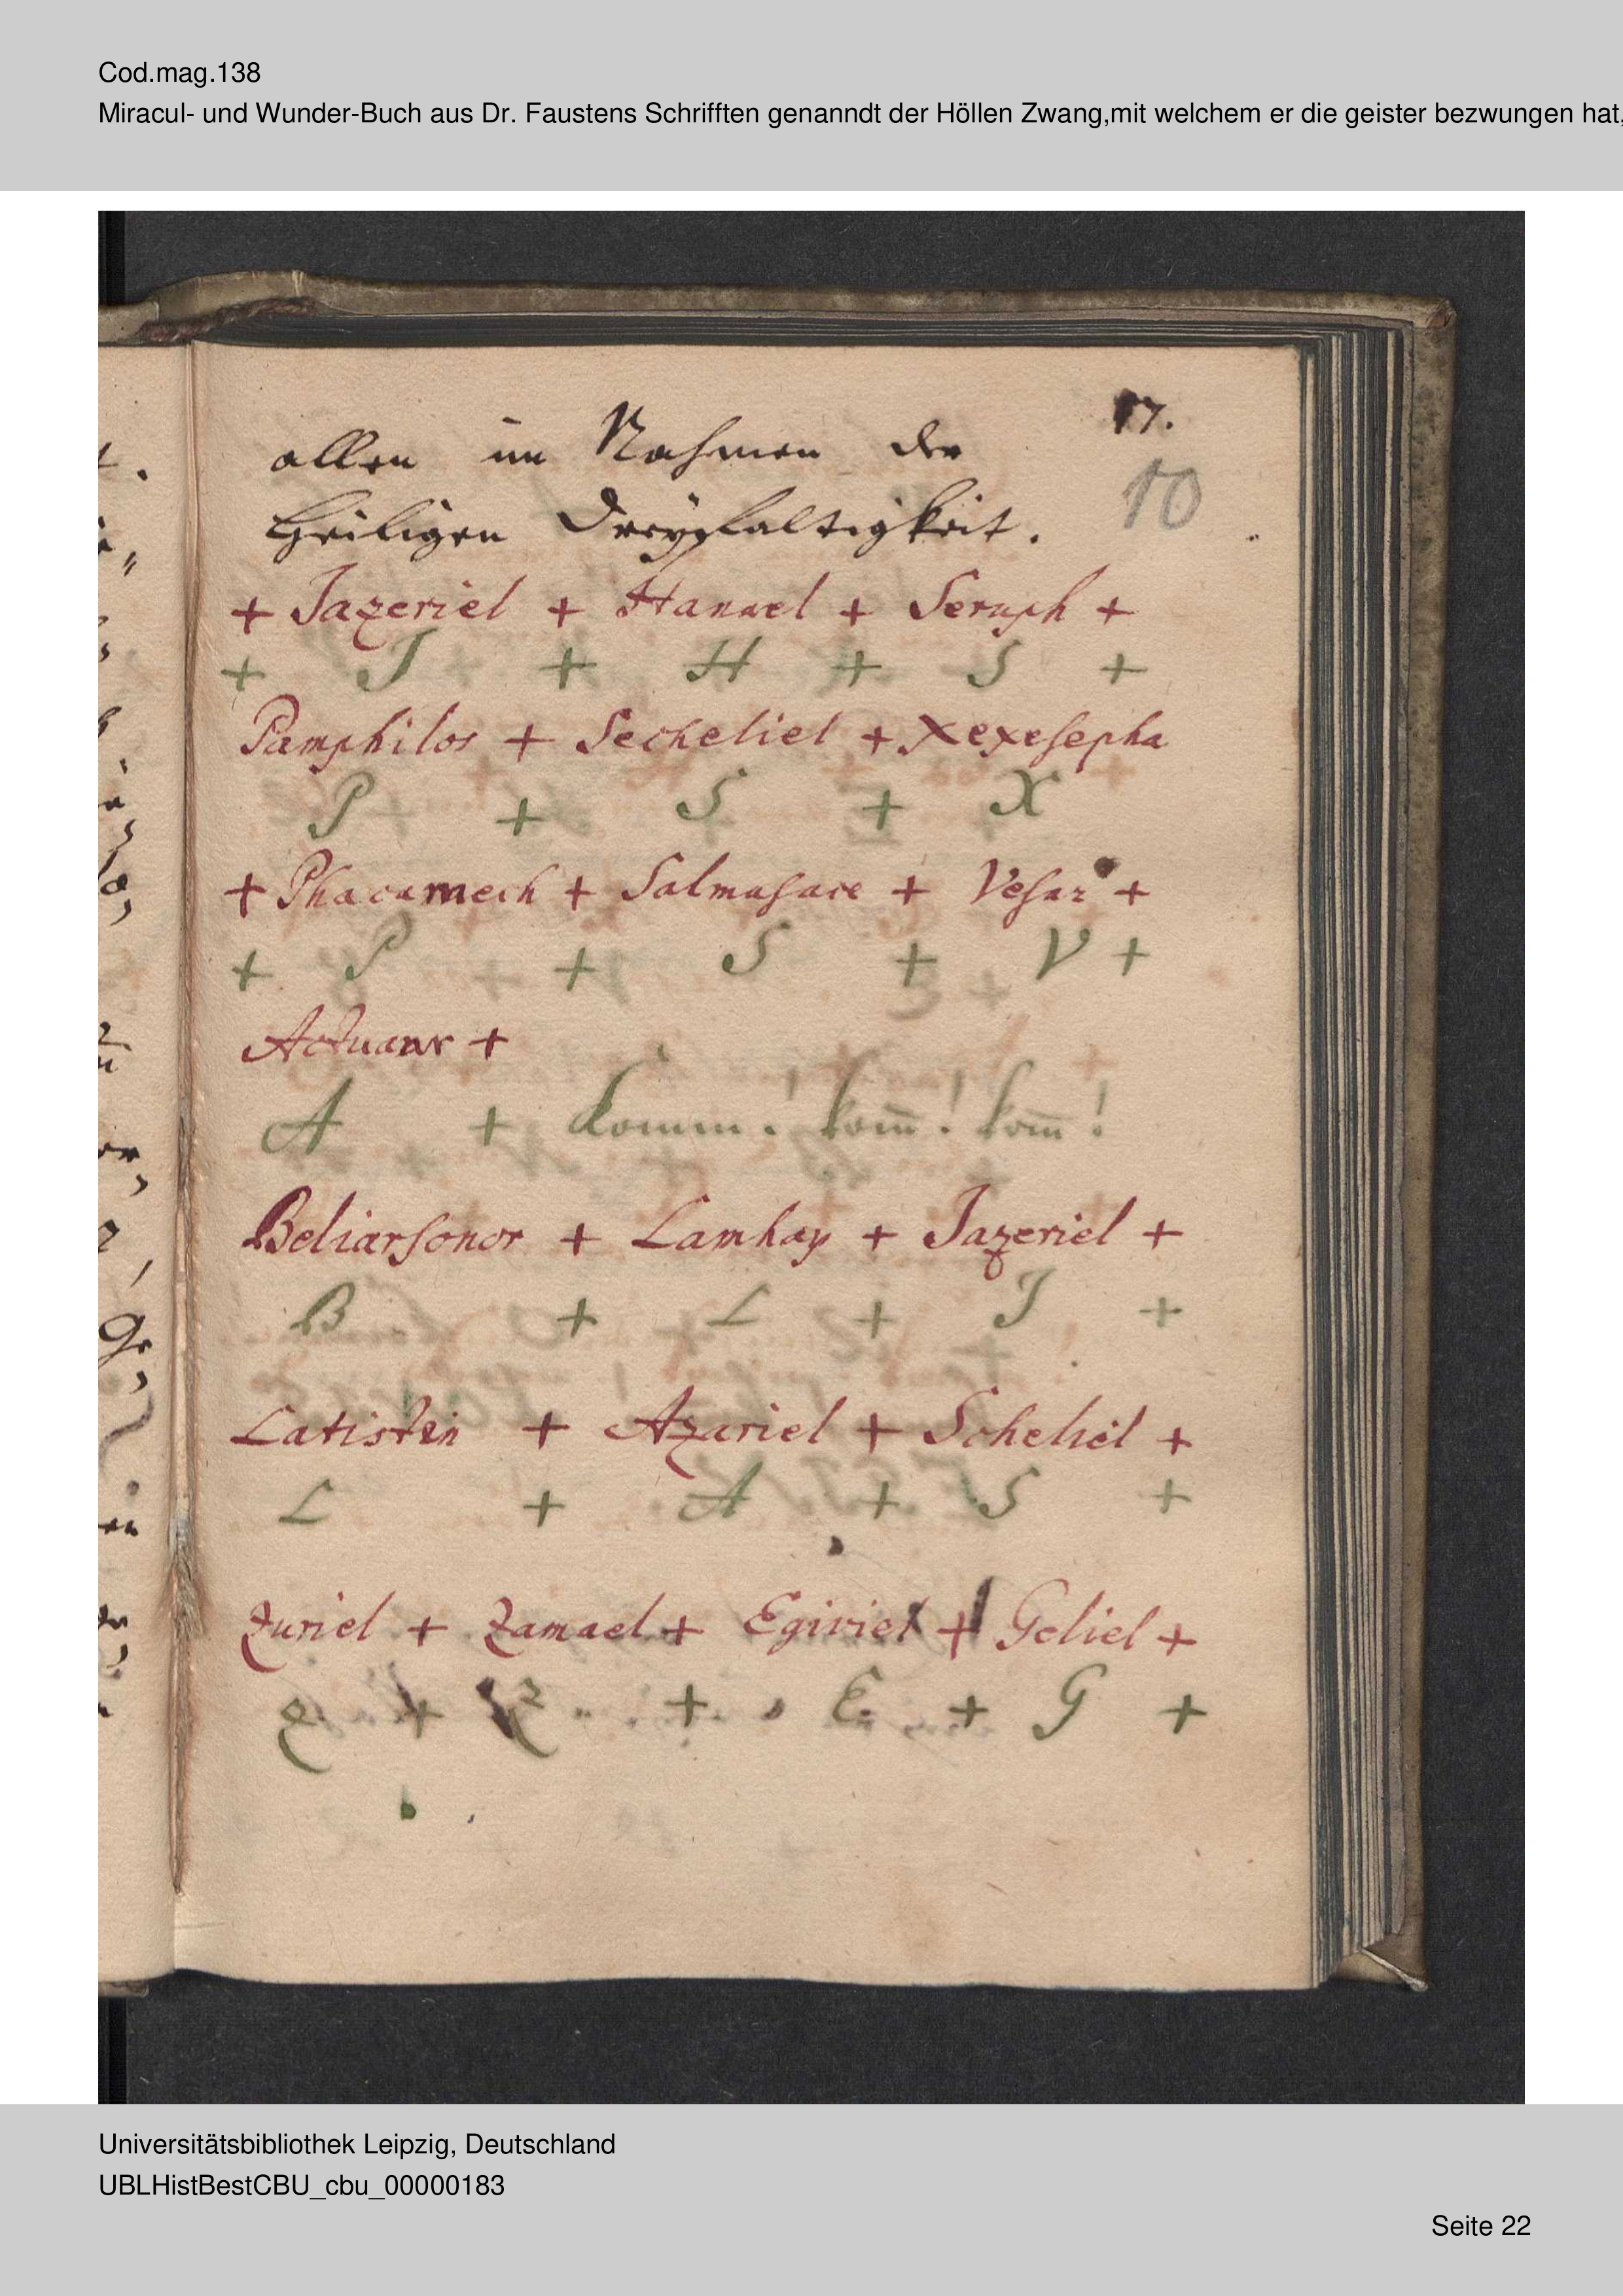 Cod.mag.138
Miracul- und Wunder-Buch aus Dr. Faustens Schrifften genanndt der Höllen Zwang,mit welchem er die geister bezwungen hat,
17.
allen im Nahmen der
10
Heiligen Dreyfaltigkeit.
+ Jazeriel + Hanael + Seruph +
+ J + H + S +
Pamphilos + Secheliel + Xexesepha
P + S + X
+ Phacamech + Salmasace + Vesar +
+ P + S + V +
Actuanr +
A + Komm! kom̄! kom̄!
Beliarsonor + Lamhay + Jazeriel +
B + L + J +
Latisten + Azariel + Scheliel +
L + A + S +
Zuriel + Zamael + Egiriel + Geliel +
Z + Z + E + G +
Universitätsbibliothek Leipzig, Deutschland
UBLHistBestCBU_cbu_00000183
Seite 22